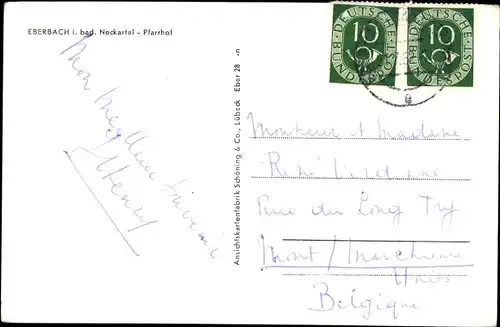 EBERBACH i. bad. Neckartal - Pfarrhof
DEUTSCHE BUNDESPOST
10
DEUTSCHE BUNDESPOST
10
Mon meilleur souvenir
Henry
Ansichtskartenfabrik Schöning & Co., Lübeck Eber 28 -n
Monsieur et Madame
René
Rue du Long Try
Mont/Marchienne
Belgique